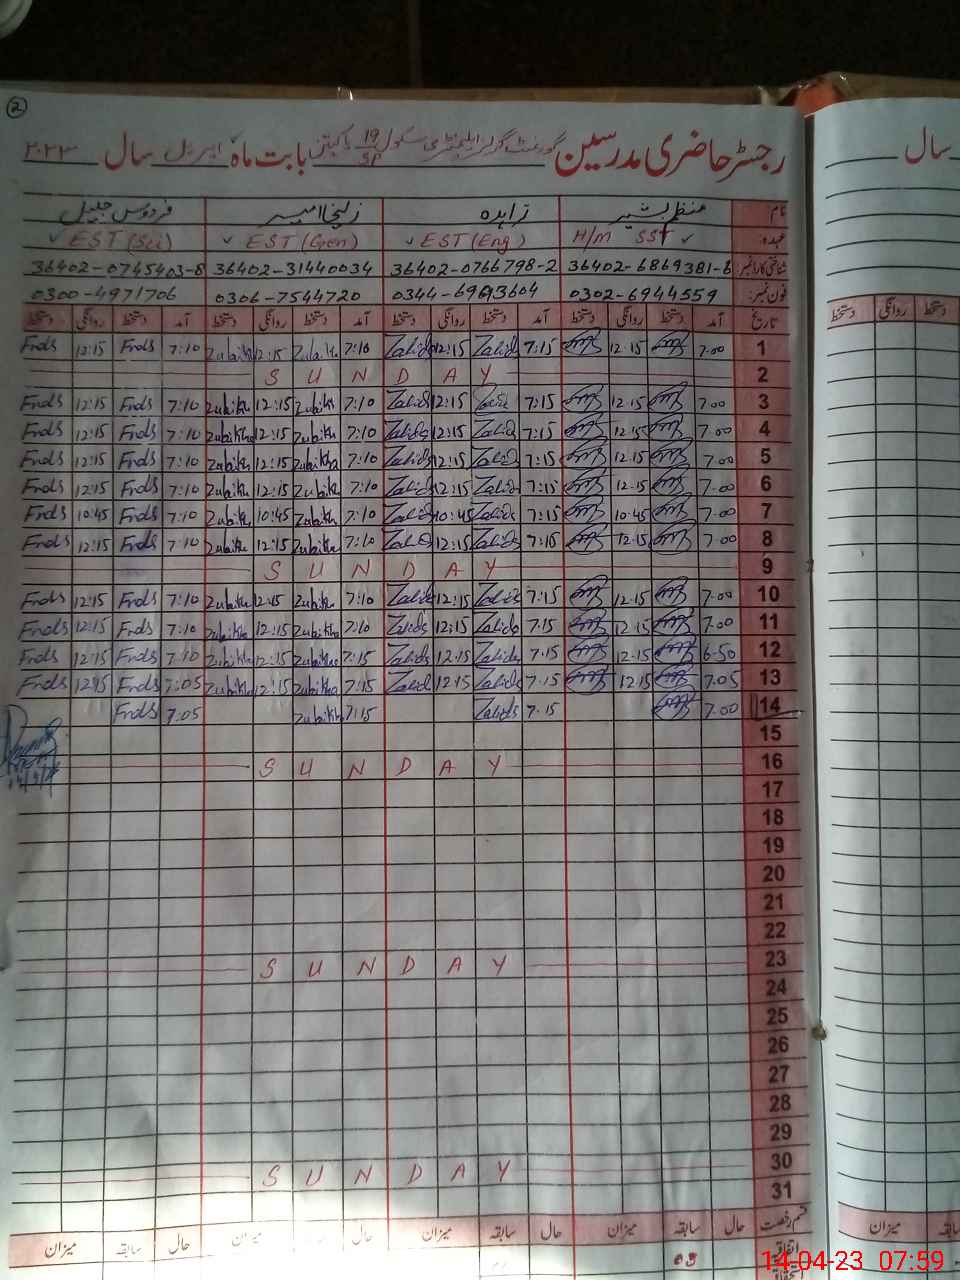 2
رجسٹر حاضری مدرسین گورنمنٹ گرلز ایلیمنٹری سکول 19/SP پاکپتن بابت ماہ اپریل سال ٢٠٢٣
نام منظم بشیر زاہدہ زلیخا امیر فردوس جلیل
عہدہ H/M SST ✓ ✓ EST (Eng) ✓ EST (Gen) ✓ EST (Sci)
شناختی کارڈ نمبر 36402-6869381-6 36402-0766798-2 36402-31440034 36402-0745403-8
فون نمبر: 0302-6944559 0306-7544720 0300-4971706
تاریخ آمد دستخط روانگی دستخط آمد دستخط روانگی دستخط آمد دستخط روانگی دستخط آمد دستخط روانگی دستخط
1 7.00 12.15 7:15 Zahid 12:15 Zahid 7:10 12:15 7:10 Frds 12:15 Frds
2 S U N D A Y
3 7.00 12.15 7:15 12:15 Zahid 7:10 12:15 7:10 Frds 12:15 Frds
4 7.00 12.15 7:15 Zahid 12:15 Zahids 7:10 Zubikha 12:15 Zubikha 7:10 Frds 12:15 Frds
5 7.00 12.15 7:15 Zahid 12:15 Zahids 7:10 Zubikha 12:15 Zubikha 7:10 Frds 12:15 Frds
6 7.00 12.15 7:15 Zahid 12:15 Zahids 7:10 12:15 7:10 Frds 12:15 Frds
7 7.00 10.45 7:15 Zahids 10:45 Zahid 7:10 10:45 7:10 Frds 10:45 Frds
8 7.00 12.15 Zahids 12:15 Zahid 7:10 12:15 7:10 Frds 12:15 Frds
9 S U N D A Y
10 7.00 12.15 7:15 Zahids 12:15 Zahids 7:10 12:15 7:10 Frds 12:15 Frds
11 7.00 12.15 7.15 Zahids 12:15 Zahids 7:10 Zubikha 12:15 Zubikha 7:10 Frds 12:15 Frds
12 6.50 12.15 7.15 Zahids 12.15 Zahids 7:15 Zubikha 12:15 Zubikha 7:10 Frds 12:15 Frds
13 7.05 12.15 7.15 Zahids 12.15 Zahid 7:15 Zubikha 12:15 Zubikha 7:05 Frds 12:15 Frds
14 7.00 7.15 Zahids 7:15 Zubikha 7:05 Frds
15
16 S U N D A Y
17
18
19
20
21
22
23 S U N D A Y
24
25
26
27
28
29
30 S U N D A Y
31
قسم رخصت حال سابقہ میزان حال سابقہ میزان حال سابقہ میزان حال سابقہ میزان
اتفاقیہ 03
سال
دستخط روانگی دستخط
میزان
14-04-23 07:59